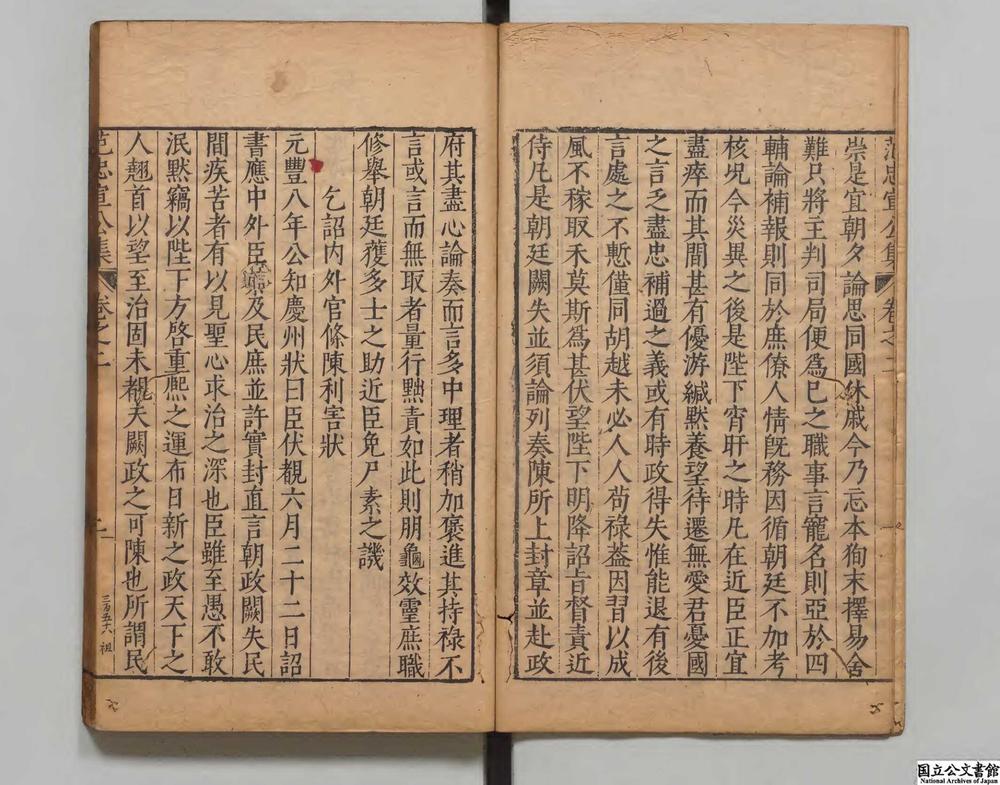 崇是宜朝夕論思同國休戚今乃忘本狥末擇易舍
難只將王判司局便爲已之職事言寵名則亞於四
輔論補報則同於庶僚人情旣務因循朝廷不加考
核况今災異之後是陛下宵旰之時凡在近臣正宜
盡瘁而其間甚有優游緘默養望待遷無愛君憂國
之言乏盡忠補過之義或有時政得失惟能退有後
言處之不慙僅同胡越未必人人苟祿葢因習以成
風不稼取禾莫斯爲甚伏望陛下明降詔旨督責近
侍凡是朝廷闕失並須論列奏陳所上封章並赴政
府其盡心論奏而言多中理者稍加褒進其持祿不
言或言而無取者量行黜責如此則朋龜效靈庶職
修舉朝廷獲多士之助近臣免尸素之譏
乞詔内外官條陳利害狀
元豐八年公知慶州狀曰臣伏覩六月二十二日詔
書應中外臣寮及民庶並許實封直言朝政闕失民
間疾苦者有以見聖心求治之深也臣雖至愚不敢
泯默竊以陛下方啓重熈之運布日新之政天下之
人翹首以望至治固未覩夫闕政之可陳也所謂民
范忠宣公集
卷之二
二
三百五六 祖
国立公文書館
National Archives of Japan